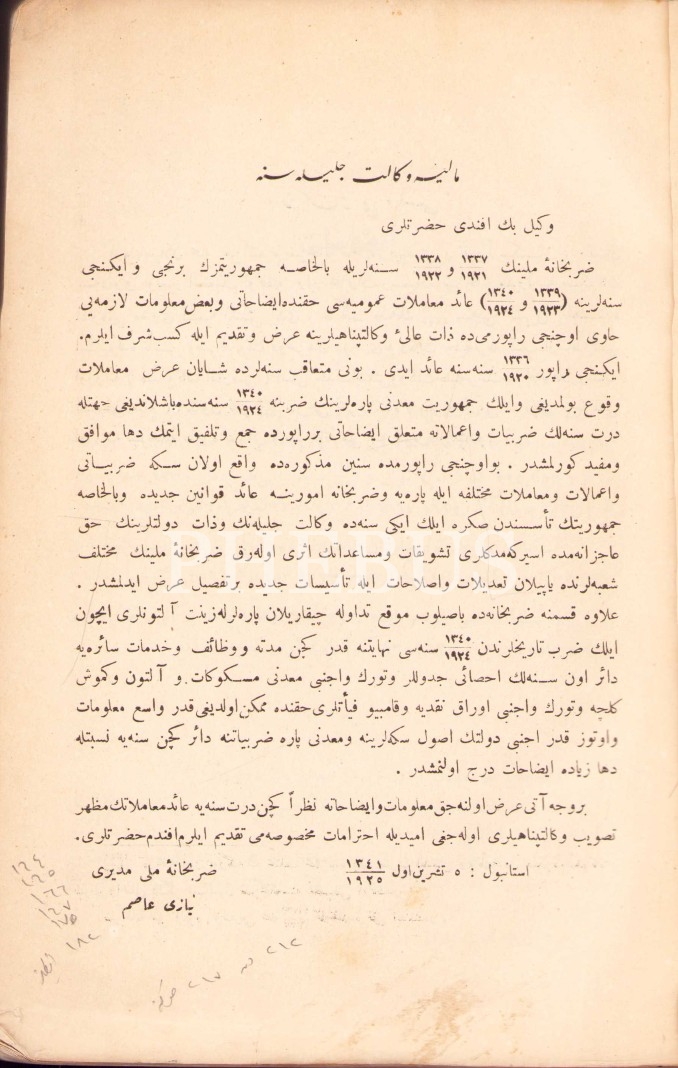 مالیه وکالت جلیله‌سنه
وکیل بك افندی حضرتلری
ضربخانهٔ ملینك ١٣٣٧/١٩٢١ و ١٣٣٨/١٩٢٢ سنه‌لریله بالخاصه جمهوریتمزك برنجی و ایکنجی
سنه‌لرینه (١٣٣٩/١٩٢٣ و ١٣٤٠/١٩٢٤) عائد معاملات عمومیه‌سی حقنده ایضاحاتی وبعض معلومات لازمه‌یی
حاوی اوچنجی راپورمی‌ده ذات عالیٔ وکالتپناهیلرینه عرض وتقدیم ایله کسب شرف ایلرم.
ایکنجی راپور ١٣٣٦/١٩٢٠ سنه‌سنه عائد ایدی . بونی متعاقب سنه‌لرده شایان عرض معاملات
وقوع بولمدیغی وایلك جمهوریت معدنی پاره‌لرینك ضربنه ١٣٤٠/١٩٢٤ سنه‌سنده باشلاندیغی جهتله
درت سنه‌لك ضربیات واعمالاته متعلق ایضاحاتی برراپورده جمع وتلفیق ایتمك دها موافق
ومفید کورلمشدر . بواوچنجی راپورمده سنین مذکوره‌ده واقع اولان سکه ضربیاتی
واعمالات ومعاملات مختلفه ایله پاره‌یه وضربخانه امورینه عائد قوانین جدیده وبالخاصه
جمهوریتك تأسسندن صکره ایلك ایکی سنه‌ده وکالت جلیله‌نك وذات دولتلرینك حق
عاجزانه‌مده اسیرکه‌مدکلری تشویقات ومساعداتك اثری اوله‌رق ضربخانهٔ ملینك مختلف
شعبه‌لرنده یاپیلان تعدیلات واصلاحات ایله تأسیسات جدیده برتفصیل عرض ایدلمشدر .
علاوه قسمنه ضربخانه‌ده باصیلوب موقع تداوله چیقاریلان پاره‌لرله زینت آلتونلری ایچون
ایلك ضرب تاریخلرندن ١٣٤٠/١٩٢٤ سنه‌سی نهایتنه قدر کچن مدته ووظائف وخدمات سائره‌یه
دائر اون سنه‌لك احصائی جدوللر وتورك واجنبی معدنی مسکوکات و آلتون وکموش
کلچه وتورك واجنبی اوراق نقدیه وقامبیو فیأتلری حقنده ممکن اولدیغی قدر واسع معلومات
واوتوز قدر اجنبی دولتك اصول سکه‌لرینه ومعدنی پاره ضربیاتنه دائر کچن سنه‌یه نسبتله
دها زیاده ایضاحات درج اولنمشدر .
بروجه آتی عرض اولنه‌جق معلومات وایضاحاته نظراً کچن درت سنه‌یه عائد معاملاتك مظهر
تصویب وکالتپناهیلری اوله‌جغی امیدیله احترامات مخصوصه‌می تقدیم ایلرم افندم حضرتلری.
استانبول : ٥ تشرین اول ١٣٤١/١٩٢٥
ضربخانهٔ ملی مدیری
نیازی عاصم
١٨٢
٢١٢ ٢١٧